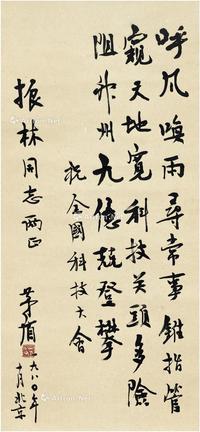 呼风唤雨寻常事锥指管
窥天地宽科技关头多险
阻神州九亿竞登攀
祝全国科技大会
振林同志两正
茅盾
一九八〇年
十月北京